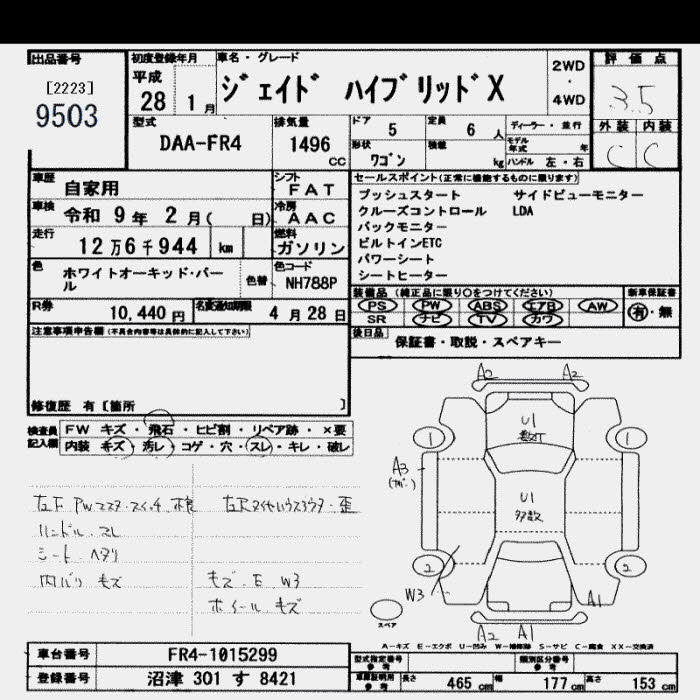 出品番号 初度登録年月 車名・グレード 評価点
[2223] 平成 ジェイド ハイブリッドX 2WD・4WD 3.5
9503 28 1月 外装 内装
型式 排気量 ドア 5 定員 6人 ディーラー・並行 C C
DAA-FR4 1496 cc 形状 ワゴン 積載 kg モデル年式 年 ハンドル 左・右
車歴 自家用 シフト FAT セールスポイント(正常に機能するものに限ります)
車検 令和 9年 2月( 日) 冷房 AAC プッシュスタート サイドビューモニター
クルーズコントロール LDA
走行 12万6千944 km 燃料 ガソリン バックモニター
ビルトインETC
色 ホワイトオーキッド・パール 色替 色コード NH788P パワーシート
シートヒーター
装備品(純正品に限り○をつけてください) 新車保証書
PS PW ABS エアB AW 有・無
SR ナビ TV カワ
R券 10,440円 名変通知期限 4月28日
後日品 保証書・取説・スペアキー
注意事項申告欄(不具合内容等は具体的に記入して下さい)
修復歴 有〔箇所 〕
検査員記入欄 FW キズ・飛石・ヒビ割・リペア跡・×要
内装 キズ・汚レ・コゲ・穴・スレ・キレ・破レ
左F PWマスタースイッチ 不良
ハンドル スレ
シート ヘタリ
内バリ キズ キズ・E W3
ホイール キズ
A2 A2
U1
1 1
A3
U1
多数
2 2
W3 A1
スペア
A2 A1
A－キズ E－エクボ U－凹み W－補修跡 S－サビ C－腐食 XX－交換済
車台番号 FR4-1015299 型式指定番号 参考 類別区分番号 参考
登録番号 沼津 301 す 8421 車庫証明用 参考 長さ 465 cm 幅 177 cm 高さ 153 cm